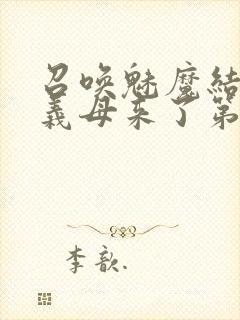 召唤魅魔結
義母来了第
李歆.